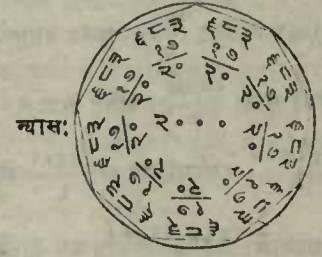 न्यासः
६८३
१७
२०
६८३
१७
२०
६८३
१७
२०
६८३
१७
२०
६८३
१७
२०
६८३
१७
२०
६८३
१७
२०
६८३
१७
२०
६८३
१७
२०
२०००